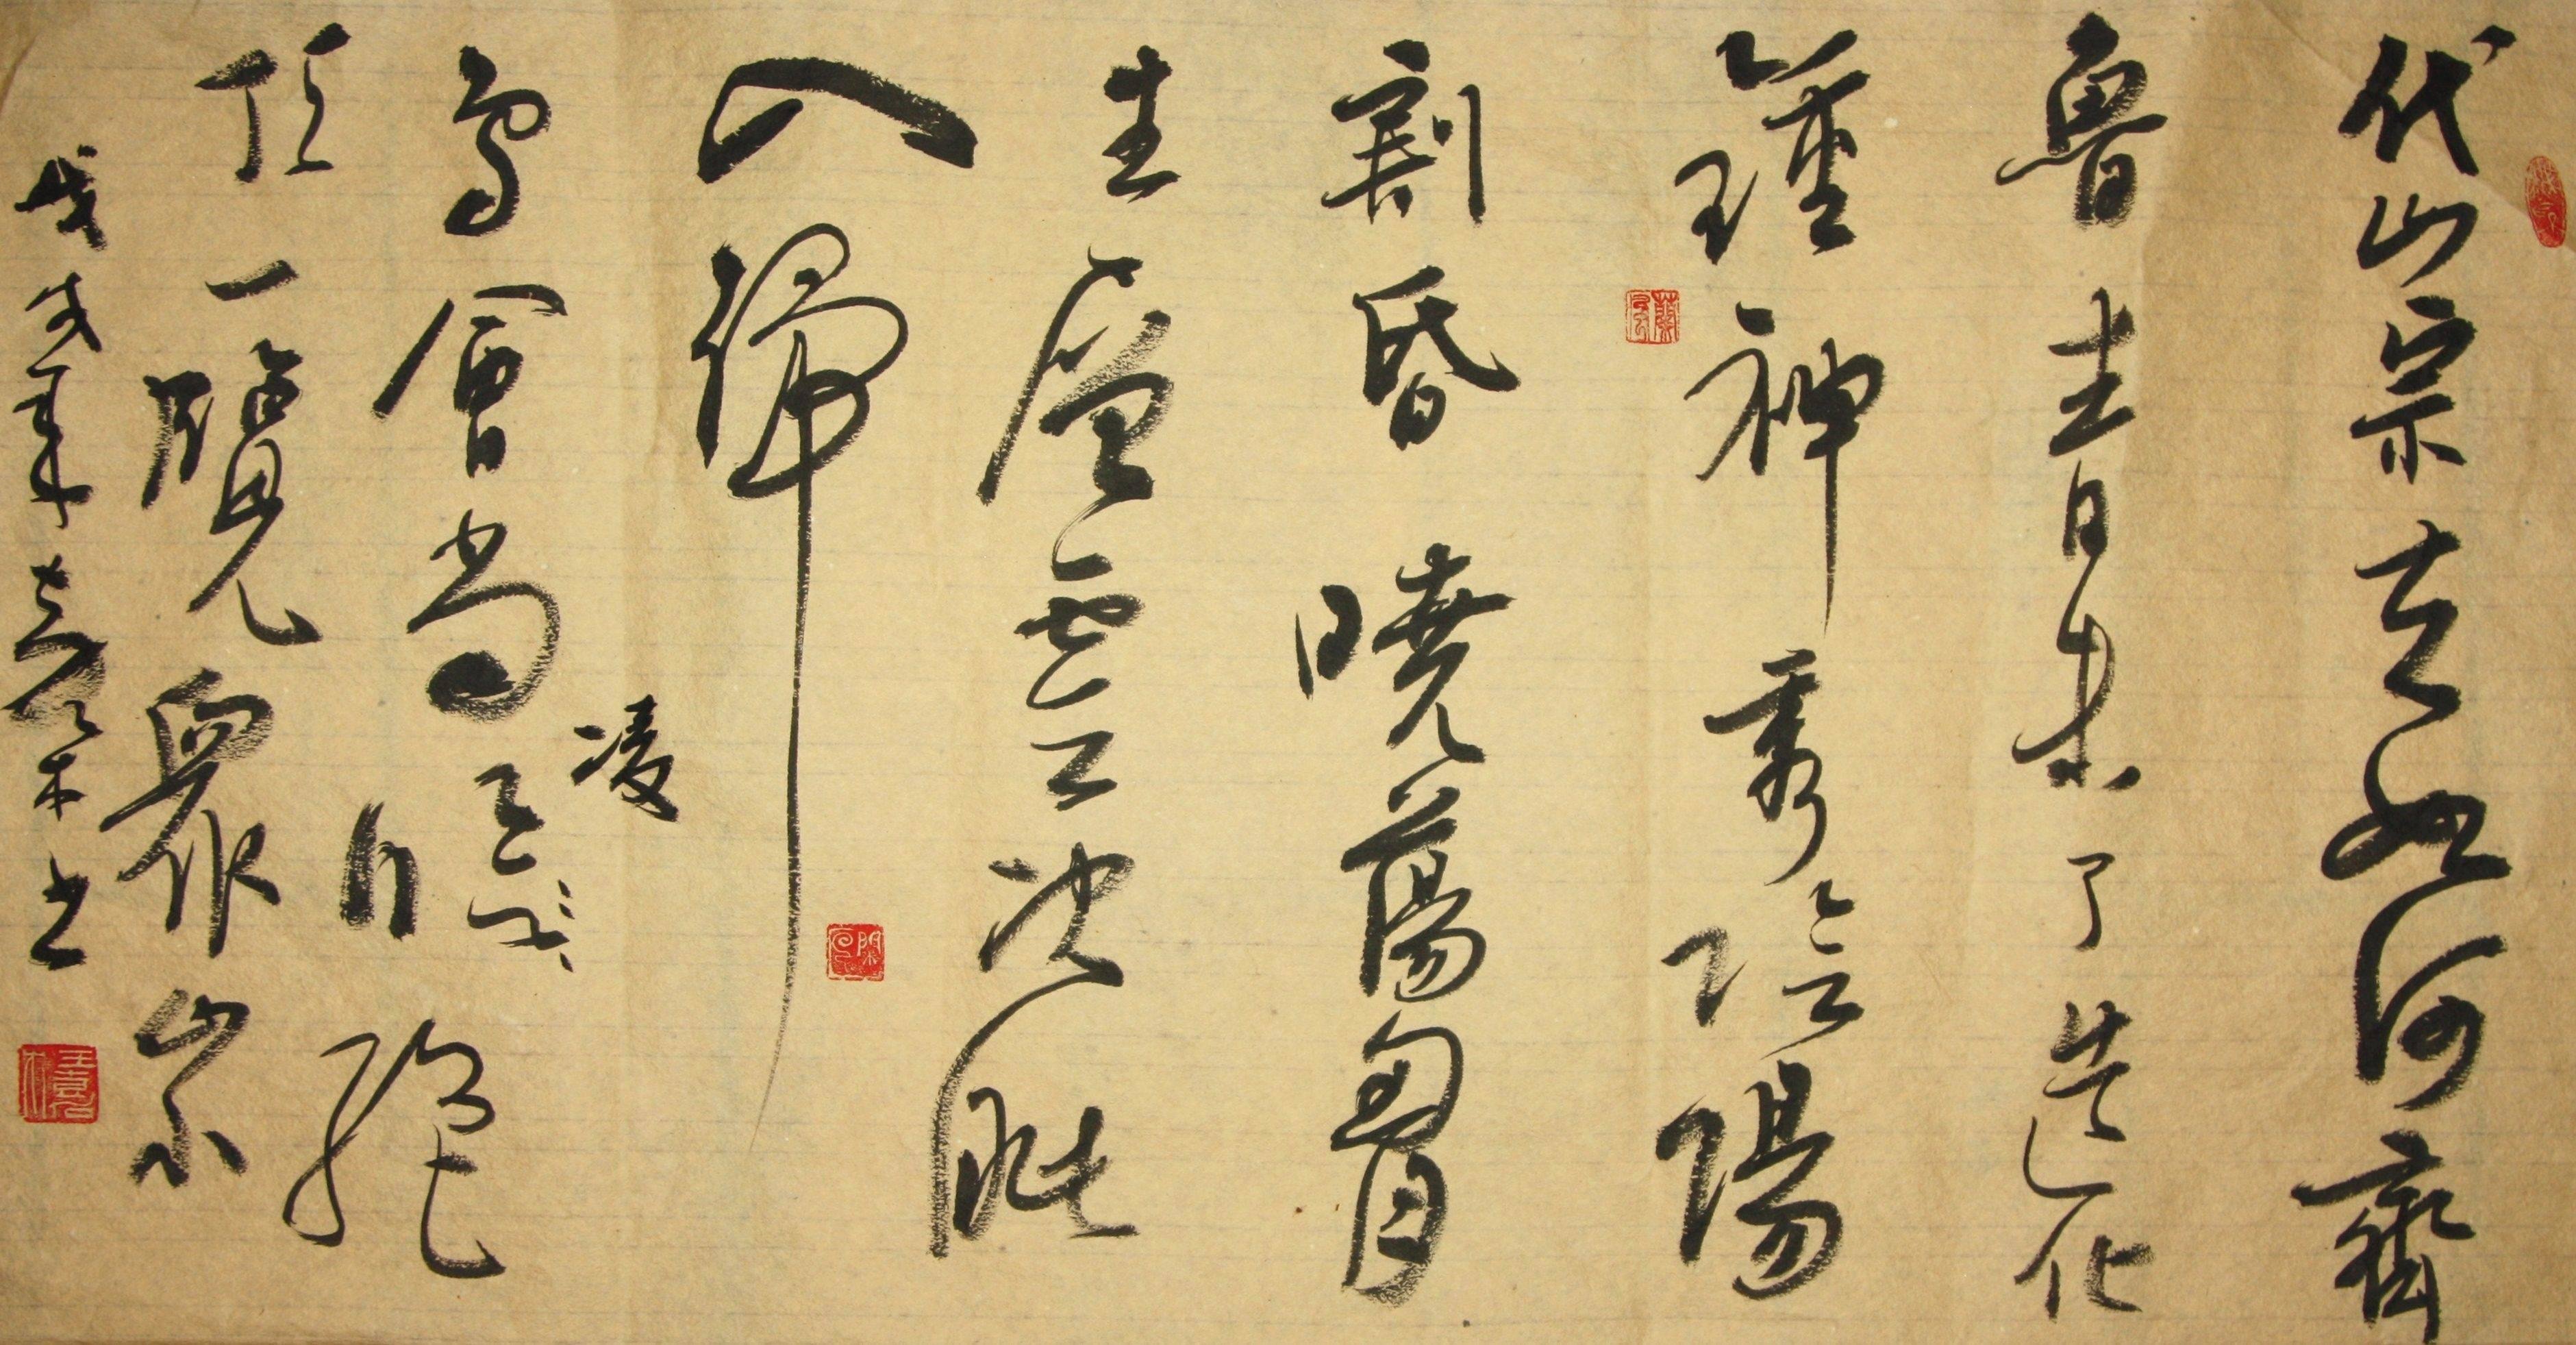 岱宗夫如何齊
魯青未了造化
鍾神秀陰陽
割昏曉蕩胸
生層雲決眥
入歸
鳥會當凌絕
頂一覽眾山小
戊戌 书